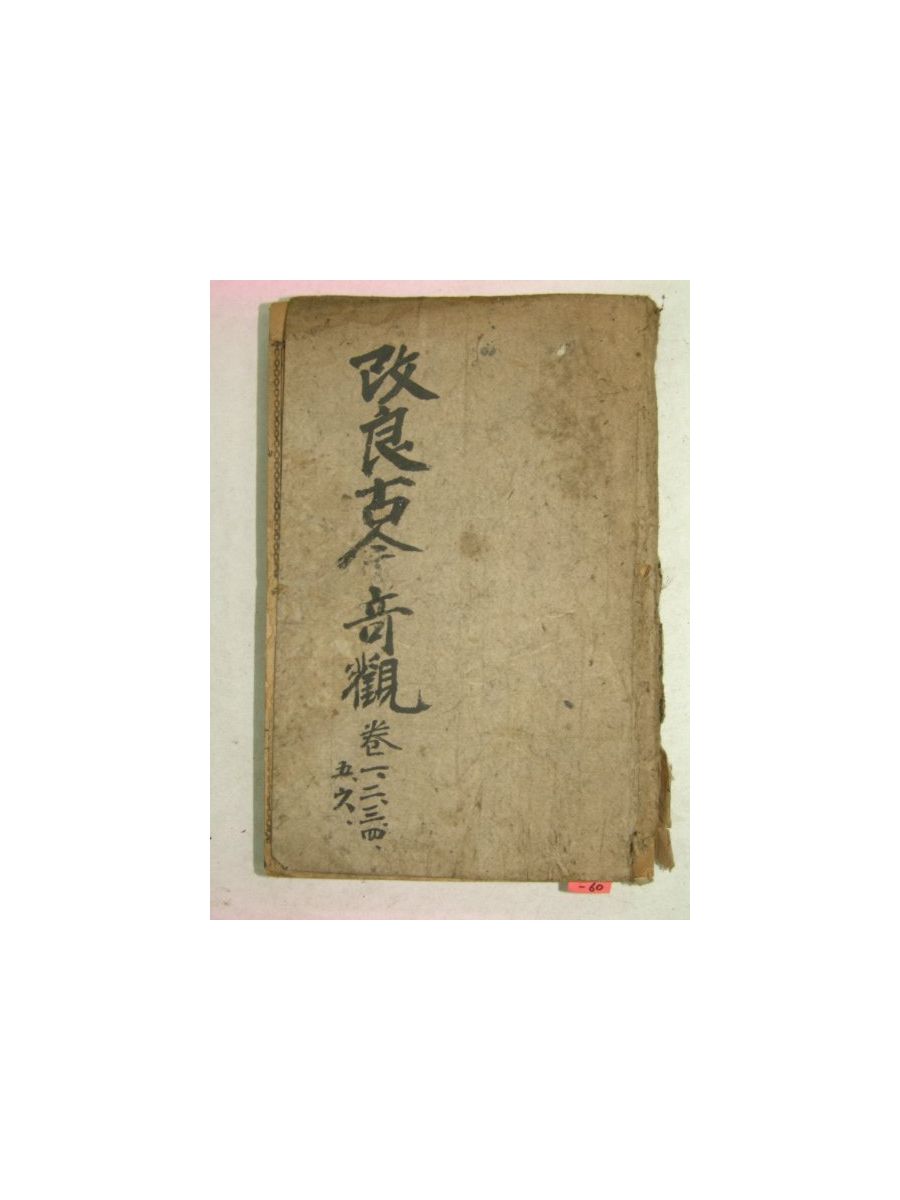 改良古今奇觀卷一、二、三、四、
五、六、
-60